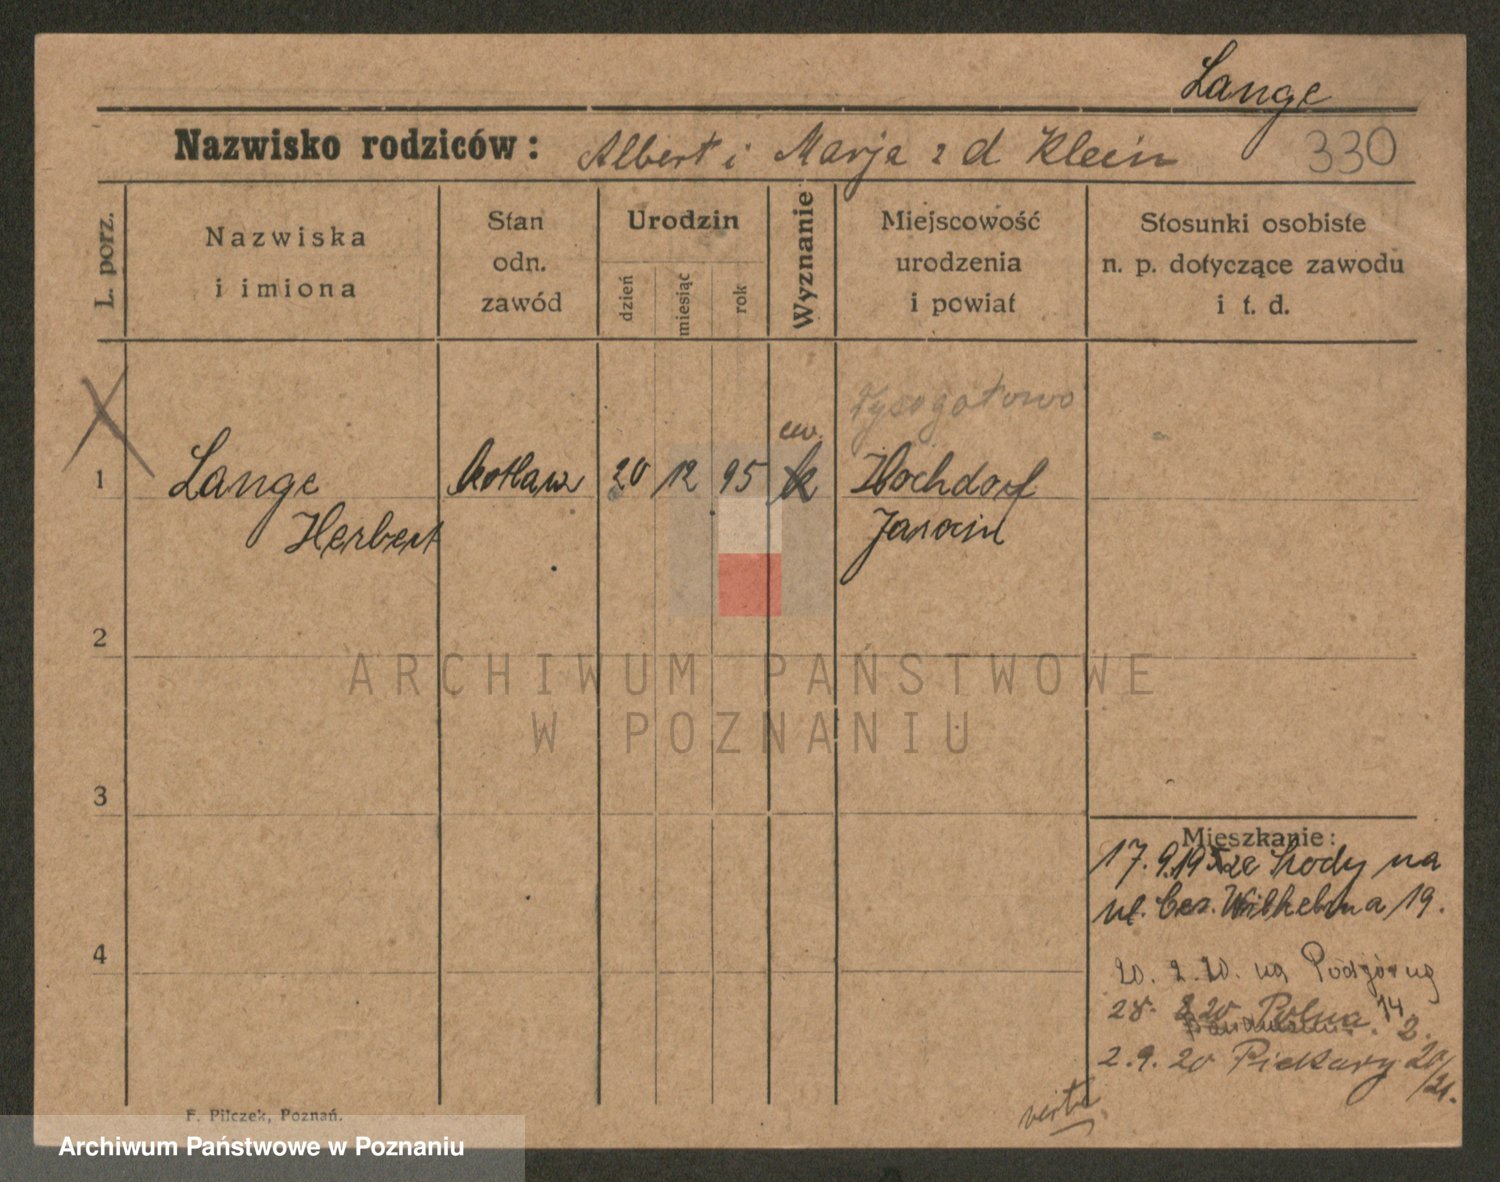 Lange
Nazwisko rodziców: Albert i Marja z d Klein 330
L. porz.
Nazwiska
i imiona
Stan
odn.
zawód
Urodzin
dzień
miesiąc
rok
Wyznanie
Miejscowość
urodzenia
i powiat
Stosunki osobiste
n. p. dotyczące zawodu
i t. d.
ew.
1 Lange 20 12 95 k Hochdorf
Herbert Jarocin
2
ARCHIWUM PAŃSTWOWE
W POZNANIU
3
Mieszkanie:
17. 9. 19 ze Łody na
ul. Ces. Wilhelma 19.
4
20. 2. 20. na Podgórną
14
28. 8 20 Polna 2.
2. 9. 20 Piekary 20/21.
verte
F. Pilczek, Poznań.
Archiwum Państwowe w Poznaniu